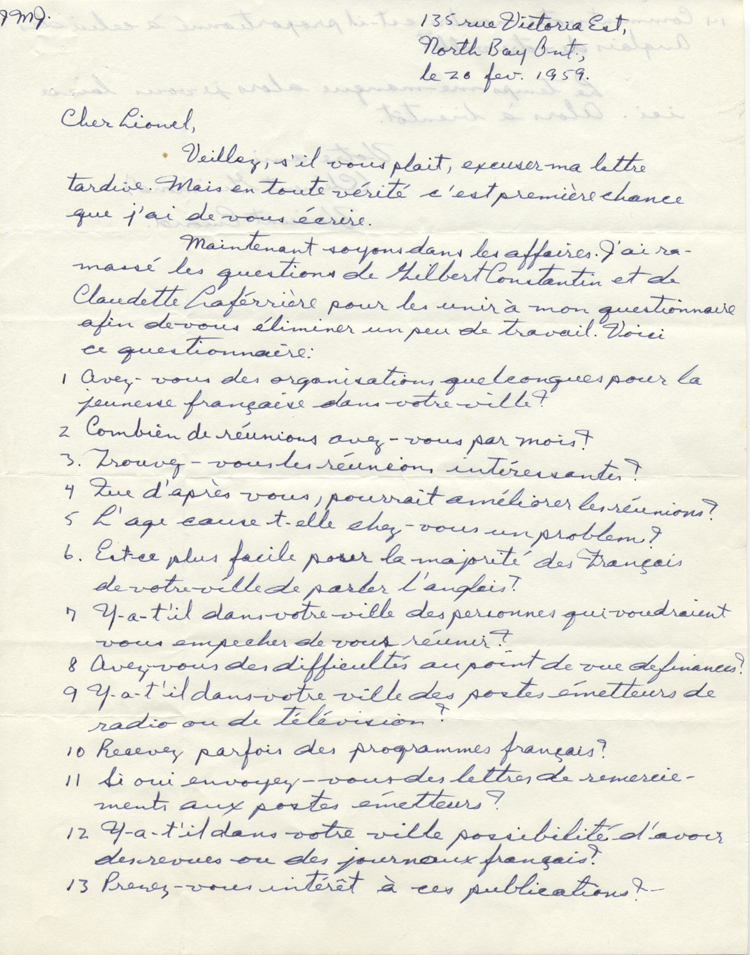 JMJ.
135 rue Victoria Est,
North Bay Ont.,
le 20 fev. 1959.
Cher Lionel,
Veillez, s'il vous plait, excuser ma lettre
tardive. Mais en toute vérité c'est première chance
que j'ai de vous écrire.
Maintenant soyons dans les affaires. J'ai ra-
massé les questions de Gilbert Constantin et de
Claudette Laférrière pour les unir à mon questionnaire
afin de vous éliminer un peu de travail. Voici
ce questionnaire:
1 Avez-vous des organisations quelconques pour la
jeunesse française dans votre ville?
2 Combien de réunions avez-vous par mois?
3. Trouvez-vous les réunions intéressantes?
4 Que d'après vous, pourrait améliorer les réunions?
5 L'age cause t-elle chez-vous un problem?
6. Est-ce plus facile pour la majorité des Français
de votre ville de parler l'anglais?
7 Y-a-t'il dans votre ville des personnes qui voudraient
vous empecher de vous réunir?
8 Avez-vous des difficultés au point de vue de finances?
9 Y-a-t'il dans votre ville des postes émetteurs de
radio ou de télévision?
10 Recevez parfois des programmes français?
11 Si oui envoyez-vous des lettres de remercie-
ments aux postes émetteurs?
12 Y-a-t'il dans votre ville possibilité d'avoir
des revues ou des journaux français?
13 Prenez-vous intérêt à ces publications?-